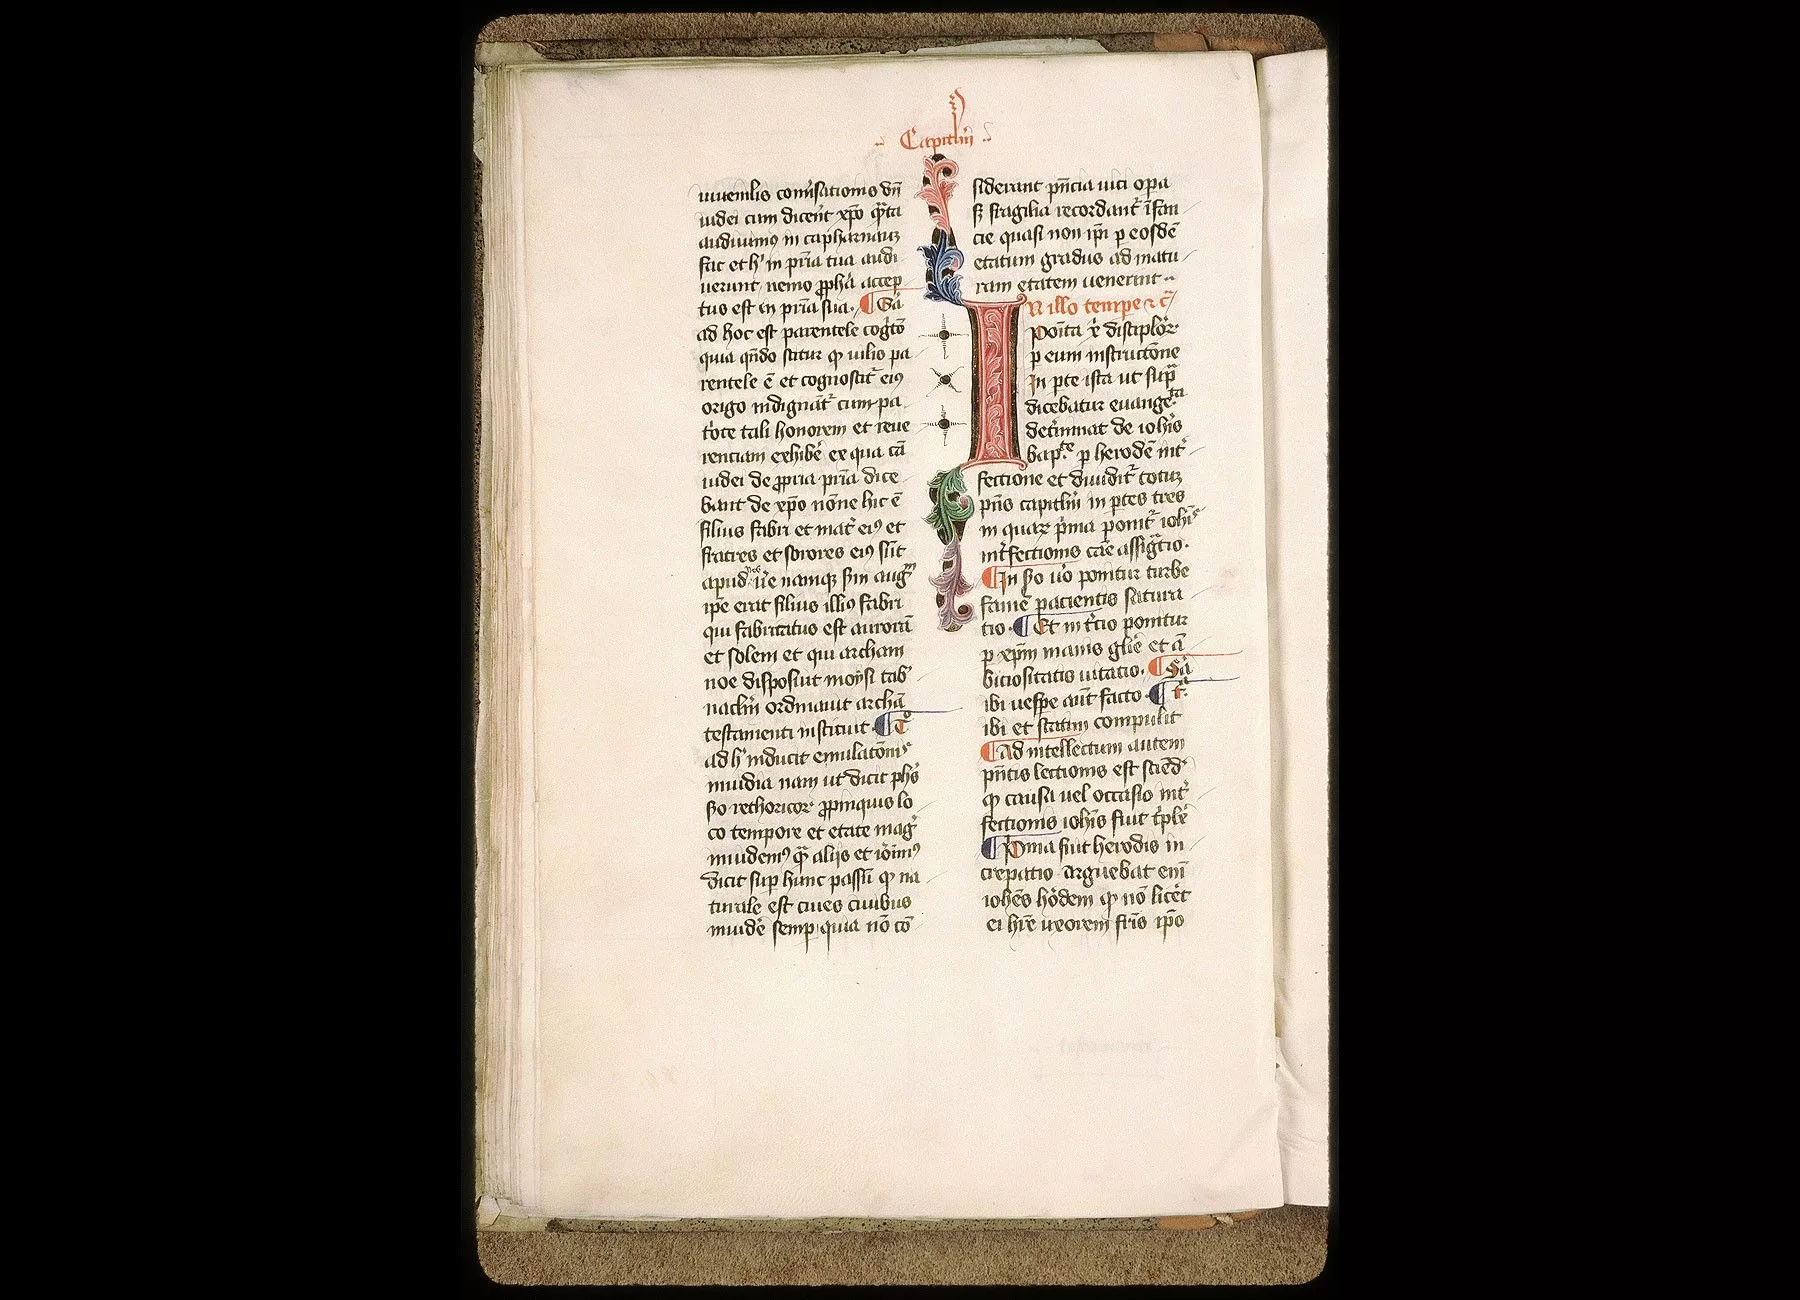 Capitlm̄
iuuenilis conuʼsationis dn̄i
iudei cum dicent xp̄o q̄nta
audiuimꝰ in capharnauꝫ
fac et hʼ in pr̄ia tua audi
uerunt nemo ꝓpha accep
tus est in pr̄ia sua. ¶ Scd̓a
ad hoc est parentele cogtō
quia qn̄do scitur ꝙ uilis pa
rentele ē et cognoscit̄ eiꝰ
origo indignāt̄ cum pa
tōte tali honorem et reue
rentiam exhibē ex qua cā
iudei de ꝓpria pr̄ia dice
bant de xp̄o nōne hic ē
filius fabri et mat̄ eiꝰ et
fratres et sorores eiꝰ sūt
apud nꝰ uē namqꝫ scd̄m augꝰ
ip̄e erat filius illiꝰ fabri
qui fabricatus est aurorā
et solem et qui archam
noe disposuit moysi tabʼ
nacl̄m ordinauit archā
testamenti instituit ¶ Tͦ
ad hʼ inducit emulatōnis
inuidia nam ut dicit phūs
scd̓o rethoricoꝝ ꝓpinquis lo
co tempore et etate magͥ
inuidemꝰ qͣ aliis et ioīmꝰ
dicit sup hunc passū ꝙ na
turale est ciues ciuibus
inuidē semp quia nō cō
siderant pn̄cia uici opa
sꝫ fragilia recordant̄ īfan
cie quasi non ip̄i p eosdē
etatum gradus ad matu
ram etatem uenerint
IN illo tempe ⁊ c̄
Posita xͥ disciploꝝ
p eum instructōne
In pte ista ut supͣ
dicebatur euangeˡᵗᵃ
det̄minat de ioh̄is
bapᵗᵉ p herodē int̄
fectione et diuidit̄ totuꝫ
pn̄s capitl̄m in ptes tres
in quaꝝ pͥma ponit̄ ioh̄is
int̄fectionis cāe assigᵃtio.
¶ In scd̓o uͦo ponitur turbe
famē pacientis satura
tio. ¶ Et in t̄cio ponitur
p xp̄m inanis glīe et ā
biciositatis uitatio. ¶ Scd̓a
ibi uespe aūt facto ¶ tͣ
ibi et statim compulit
¶ Ad intellectum autem
pn̄tis lectionis est sciēdꝰ
ꝙ causa uel occasio int̄
fectionis ioh̄is fuit tͥplē
¶ Pͥma fuit herodis in
crepatio arguebat em̄
ioh̄es hͦdem ꝙ nō licet
ei hr̄e uxorem fr̄is ip̄o